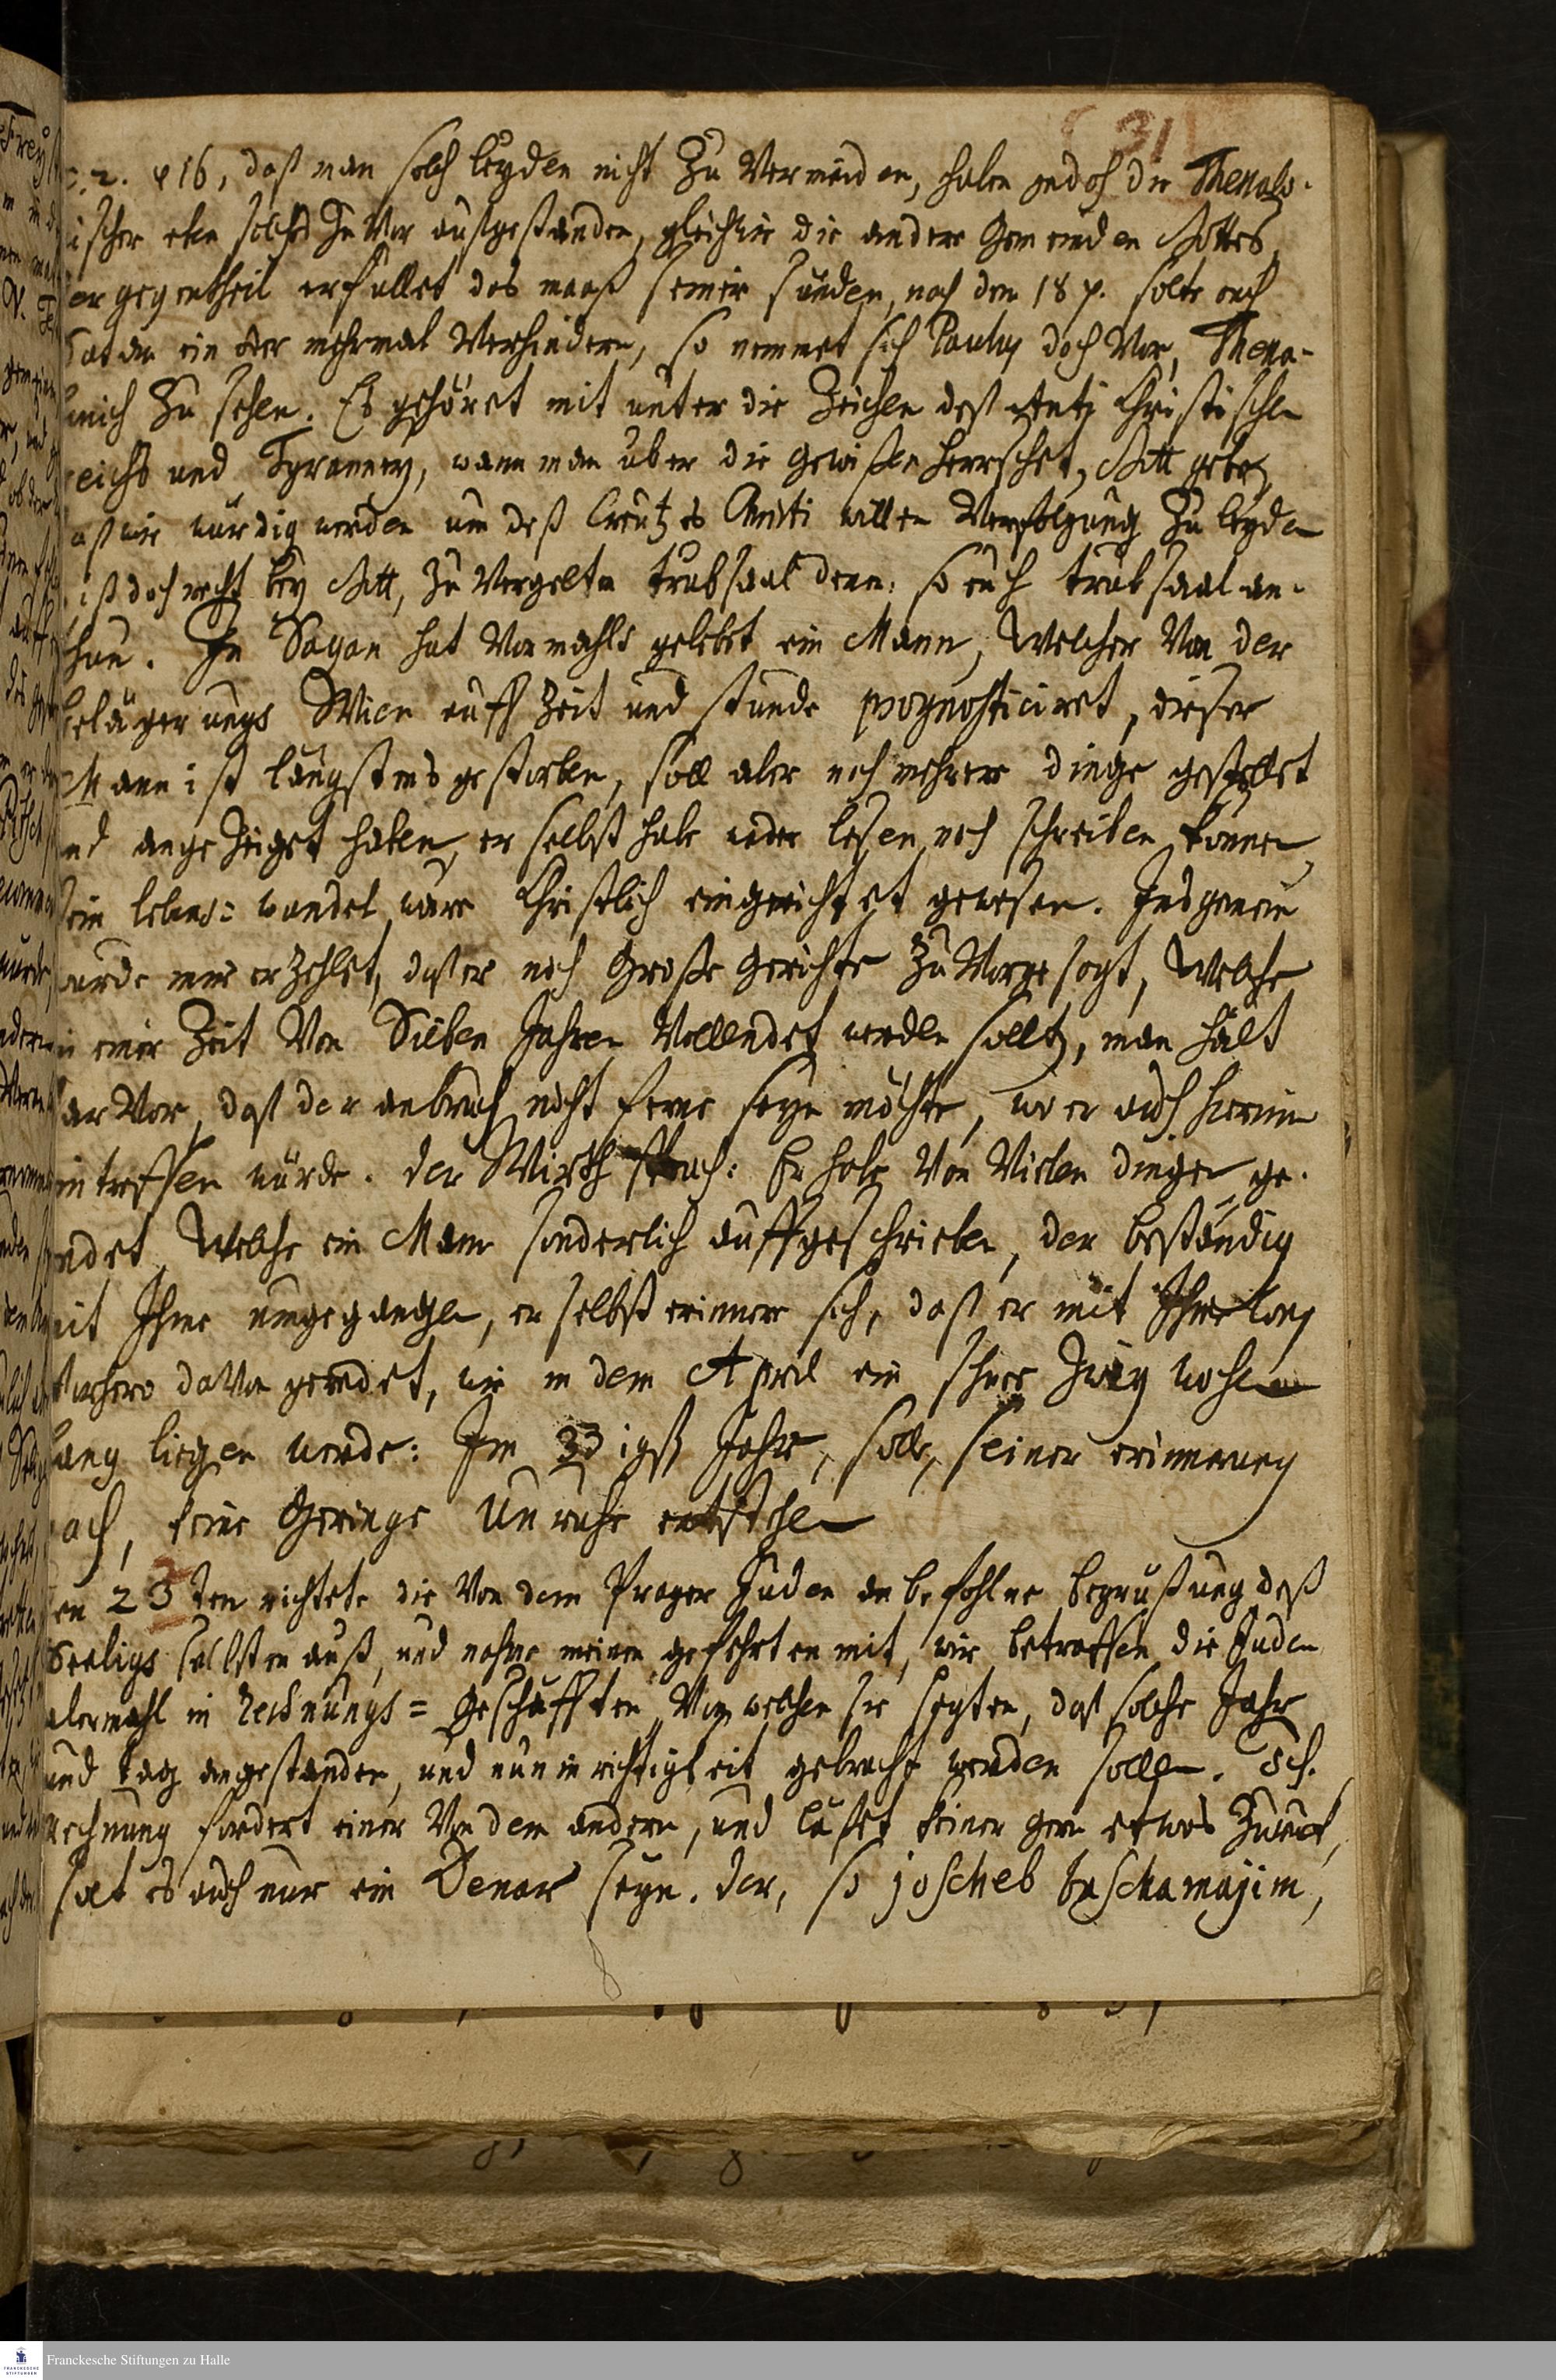 31
c. 2. v 16, daß man solch leyden nicht zu vermeiden, haben jedoch die Thessalo-
nischer eben solches zuvor außgestanden, gleichwie die andere Gemeinden Gottes,
der gegentheil erfüllet das maaß seiner sünden, nach dem 18 v. solte auch
Satan ein oder mehrmal verhindern, so nimmet sich Paulus doch vor, Thessa-
lonich zu sehen. Es gehöret mit unter die Zeichen deß Anti Christischen
reichs und Tyranney, wann man uber die gewißen herrschet, Gott gebe,
daß wir würdig werden um deß Creutzes Christi willen Verfolgung zu leyden
ist doch recht bey Gott, zu vergelten trübsaal denen, so euch trübsaal an-
thun. In Sagan hat vormahls gelebet ein Mann, Welcher Von der
belägerungs Wien auff Zeit und stunde prognosticiret, dieser
Mann ist längstens gestorben, soll aber noch mehrere dinge gestellet
und angezeiget haben, er selbst habe weder lesen noch schreiben können,
sein lebens-wandel wäre Christlich eingerichtet gewesen. Insgemein
wurde mir erzehlet, daß er noch Große Gerichte zuvorgesagt, Welche
in einer Zeit Von Sieben Jahren Vollendet werden sollen, man hält
darvor, daß der anbruch nicht ferne seyn möchte, wo er auch hierinn
eintreffen würde. Der Wirth sprach: Er habe Von Vielen dingen ge-
redet, Welche ein Mann sonderlich auffgeschrieben, der beständig
mit Ihme umgegangen, er selbst erinnere sich, daß er mit Ihme lang
vorhero davon geredet, wie in dem April ein schnee zwey wochen
lang liegen werde: Im 33igst Jahr, solle, seiner erinnerung
nach, keine Geringe Unruhe entstehen
Den 23ten richtete die Von dem Prager Juden anbefohlene begrüßung deß
Seeligs selbsten auß, und nahme meinen gefehrten mit, wir betraffen die Juden
abermahl in Rechnungs=geschäfften, Von welchen sie sagten, daß solche Jahr
und tag angestanden, und nun in richtigkeit gebracht werden sollen. Ich.
Rechnung fordert einer Von dem andern, und läßet keiner gern etwas zurück,
solt es auch nur ein Denar seyn. Der, so joscheb baschamajim,
Franckesche Stiftungen zu Halle